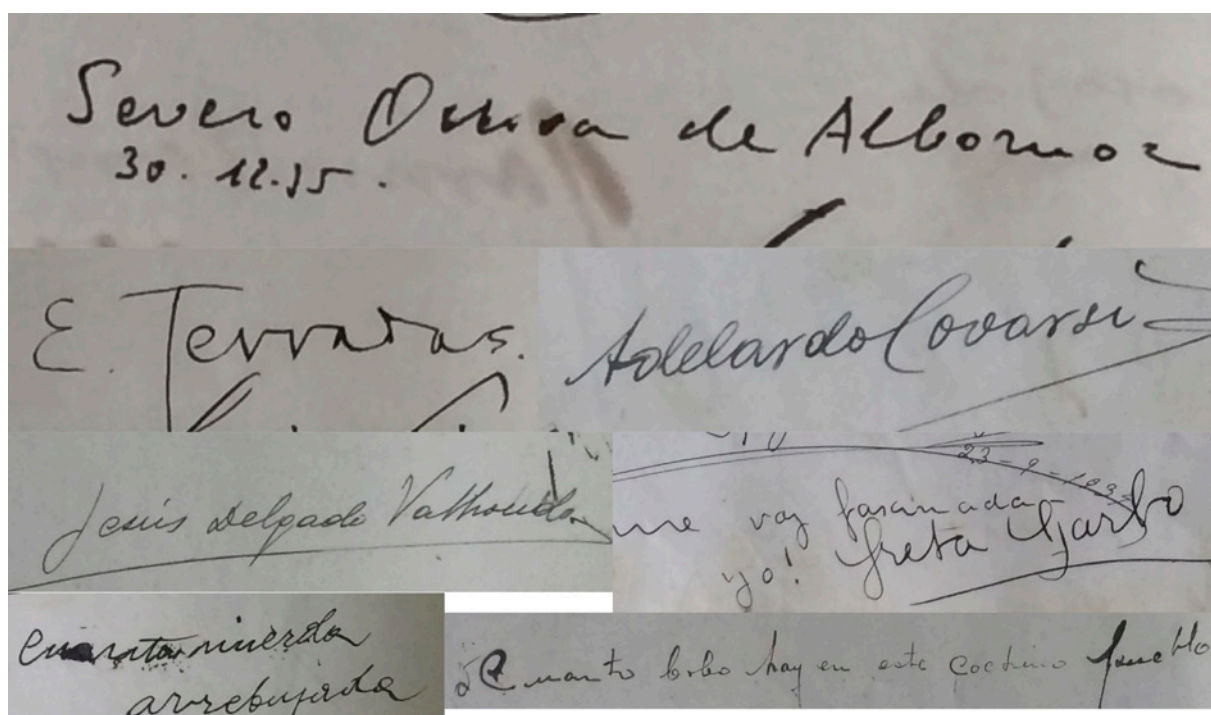 Severo Ochoa de Albornoz
30. 12.35.
E. Terradas.
Adelardo Covarsí
Jesús Delgado Valhondo
23-9-193
me voy fascinada
yo! Greta Garbo
Cuanta mierda
arrebujada
Cuanto bobo hay en este cochino pueblo